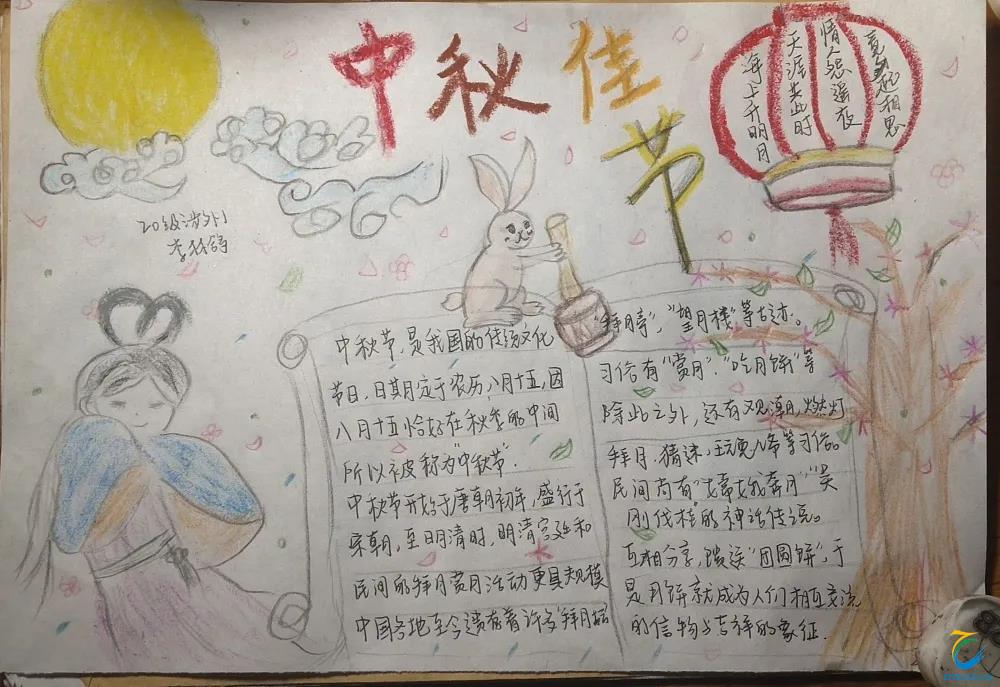 中秋佳节
海上升明月
天涯共此时
情人怨遥夜
竟夕起相思
20级涉外1
中秋节,是我国的传统文化
节日,日其月定于农历八月十五,因
八月十五恰好在秋季的中间
所以被称为"中秋节".
中秋节开始于唐朝初年,盛行于
宋朝,至明清时,明清宫廷和
民间的拜月赏月活动更具规模
中国各地至今遗存着许多"拜月坛
"拜月亭","望月楼"等古迹。
习俗有"赏月"."吃月饼"等
除此之外,还有观潮,燃灯
拜月.猜谜,玩兔儿爷等习俗。
民间尚有"嫦娥奔月"吴
刚伐桂的神话传说。
互相分享,馈送"团圆饼",于
是月饼就成为人们相互交流
的信物与吉祥的象征.